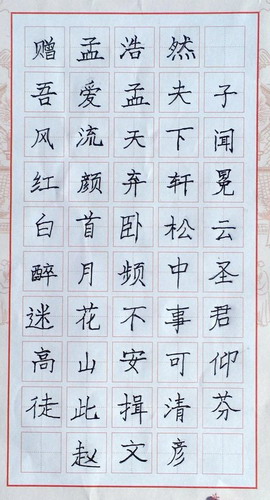 赠孟浩然
吾爱孟夫子
风流天下闻
红颜弃轩冕
白首卧松云
醉月频中圣
迷花不事君
高山安可仰
徒此揖清芬
赵文彦